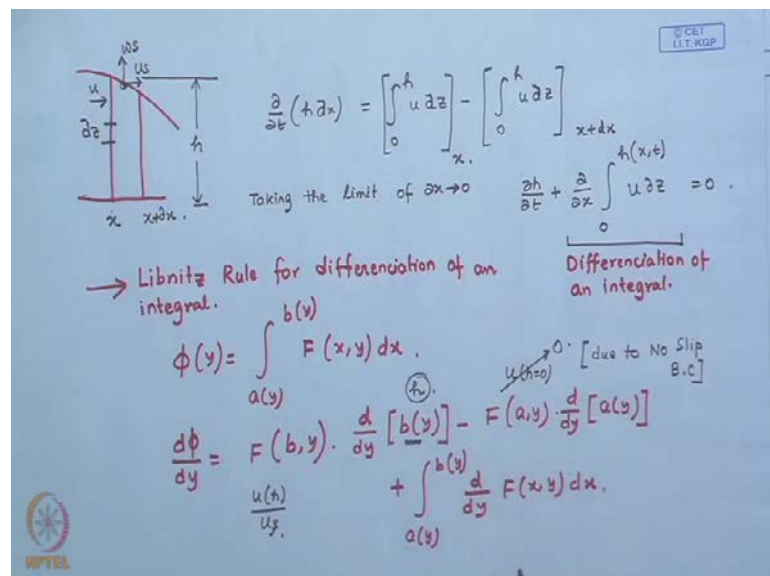 © CET
I.I.T. KGP
ws
us
u
∂z
h
x x+∂x.
∂/∂t (h ∂x) = [∫₀^h u ∂z]_x. - [∫₀^h u ∂z]_x+dx
Taking the Limit of ∂x→0 ∂h/∂t + ∂/∂x ∫₀^h(x,t) u ∂z = 0.
→ Libnitz Rule for differenciation of an
integral.
Differenciation of
an integral.
ϕ(y) = ∫_a(y)^b(y) F(x,y) dx.
u(h=0) 0. [due to No Slip
B.C]
(h).
dϕ/dy = F(b,y). d/dy [b(y)] - F(a,y). d/dy [a(y)]
+ ∫_a(y)^b(y) d/dy F(x,y) dx.
u(h)
us.
NPTEL